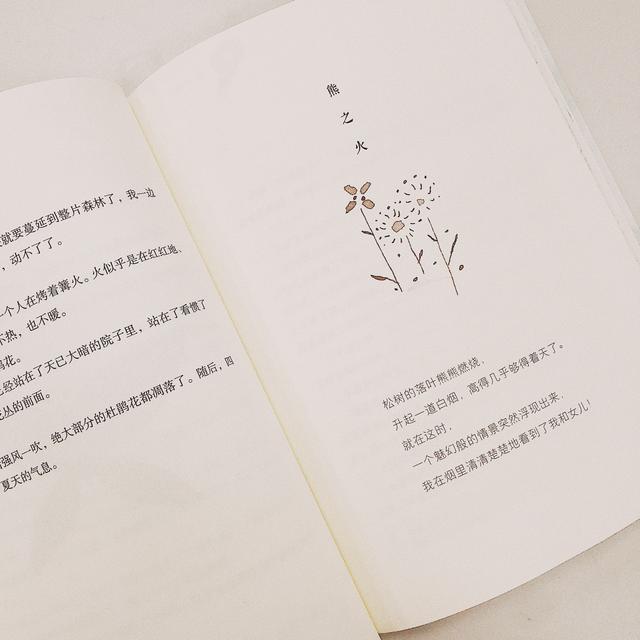 就要蔓延到整片森林了，我一边
，动不了了。
一个人在烤着篝火。火似乎是在红红地、
不热，也不暖。
鹃花。
已经站在了天已大暗的院子里，站在了看惯了
花丛的前面。
强风一吹，绝大部分的杜鹃花都凋落了。随后，四
夏天的气息。
熊之火
松树的落叶熊熊燃烧，
升起一道白烟，高得几乎够得着天了。
就在这时，
一个魅幻般的情景突然浮现出来，
我在烟里清清楚楚地看到了我和女儿！